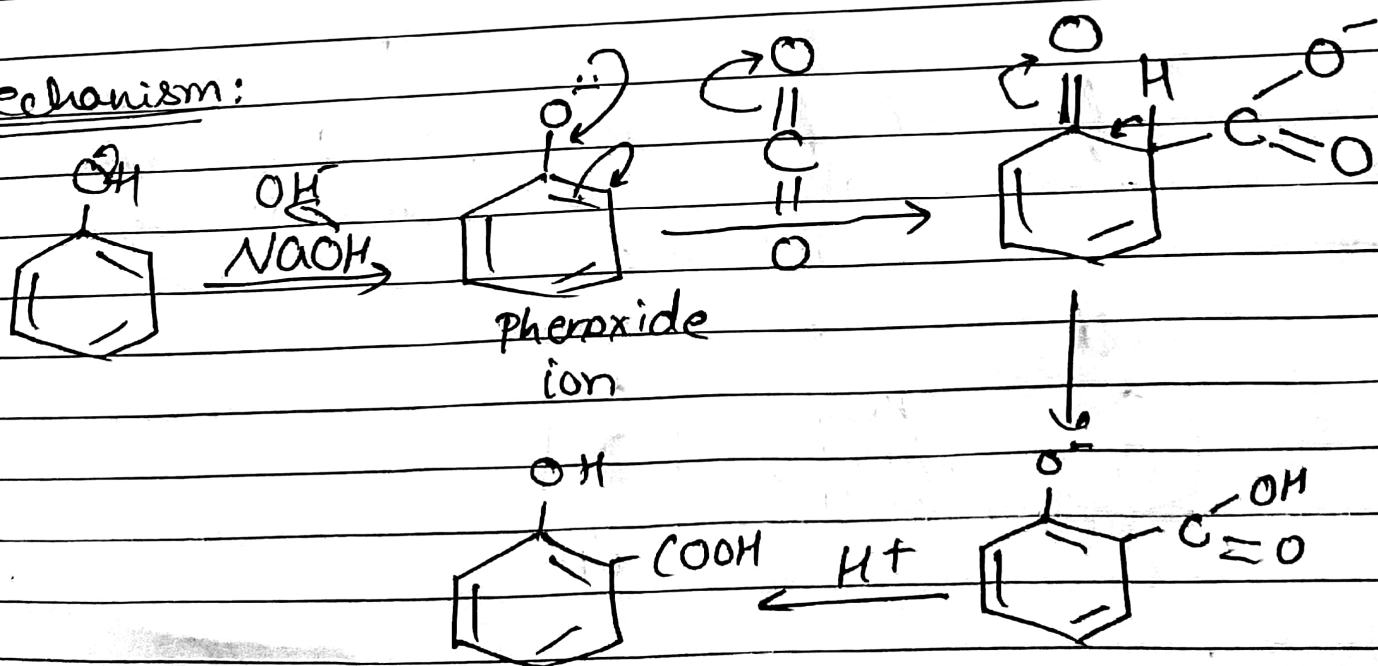 echanism:
OH
OH⁻
NaOH
O
pheroxide
ion
O
C
O
O
H
O⁻
C
O
O⁻
OH
C
O
H+
OH
COOH